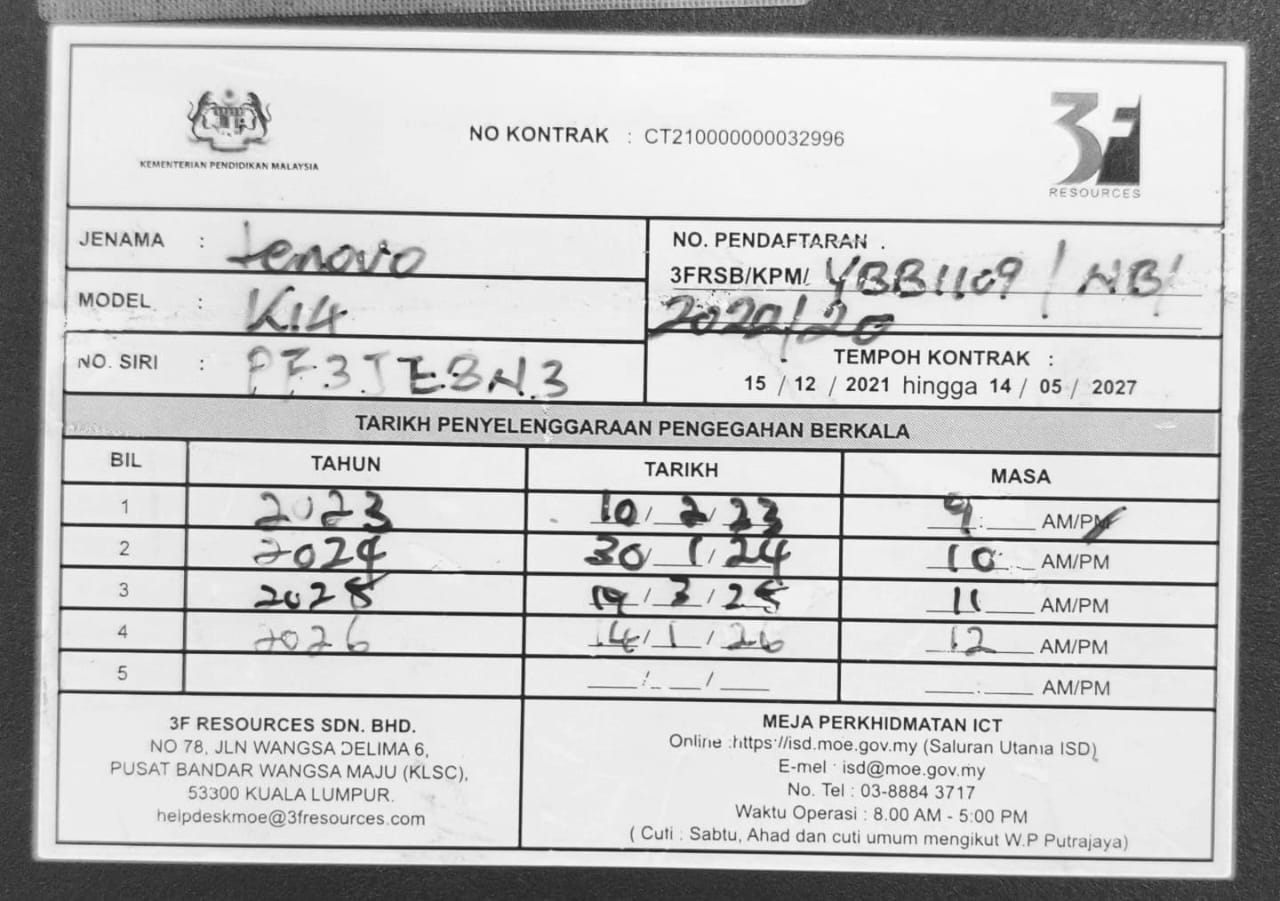 KEMENTERIAN PENDIDIKAN MALAYSIA
NO KONTRAK : CT210000000032996
3F
RESOURCES
JENAMA : Lenovo
MODEL : K14
NO. SIRI : PF3JE8N3
NO. PENDAFTARAN :
3FRSB/KPM/ YBB1109 / NB/
2022/20
TEMPOH KONTRAK :
15 / 12 / 2021 hingga 14 / 05 / 2027
TARIKH PENYELENGGARAAN PENGEGAHAN BERKALA
BIL TAHUN TARIKH MASA
1 2023 10 / 2 / 23 9 : AM/PM
2 2024 30 / 1 / 24 10 AM/PM
3 2025 19 / 3 / 25 11 AM/PM
4 2026 14 / 1 / 26 12 AM/PM
5 / / : AM/PM
3F RESOURCES SDN. BHD.
NO 78, JLN WANGSA DELIMA 6,
PUSAT BANDAR WANGSA MAJU (KLSC),
53300 KUALA LUMPUR.
helpdeskmoe@3fresources.com
MEJA PERKHIDMATAN ICT
Online :https://isd.moe.gov.my (Saluran Utama ISD)
E-mel : isd@moe.gov.my
No. Tel : 03-8884 3717
Waktu Operasi : 8.00 AM - 5:00 PM
( Cuti : Sabtu, Ahad dan cuti umum mengikut W.P Putrajaya)